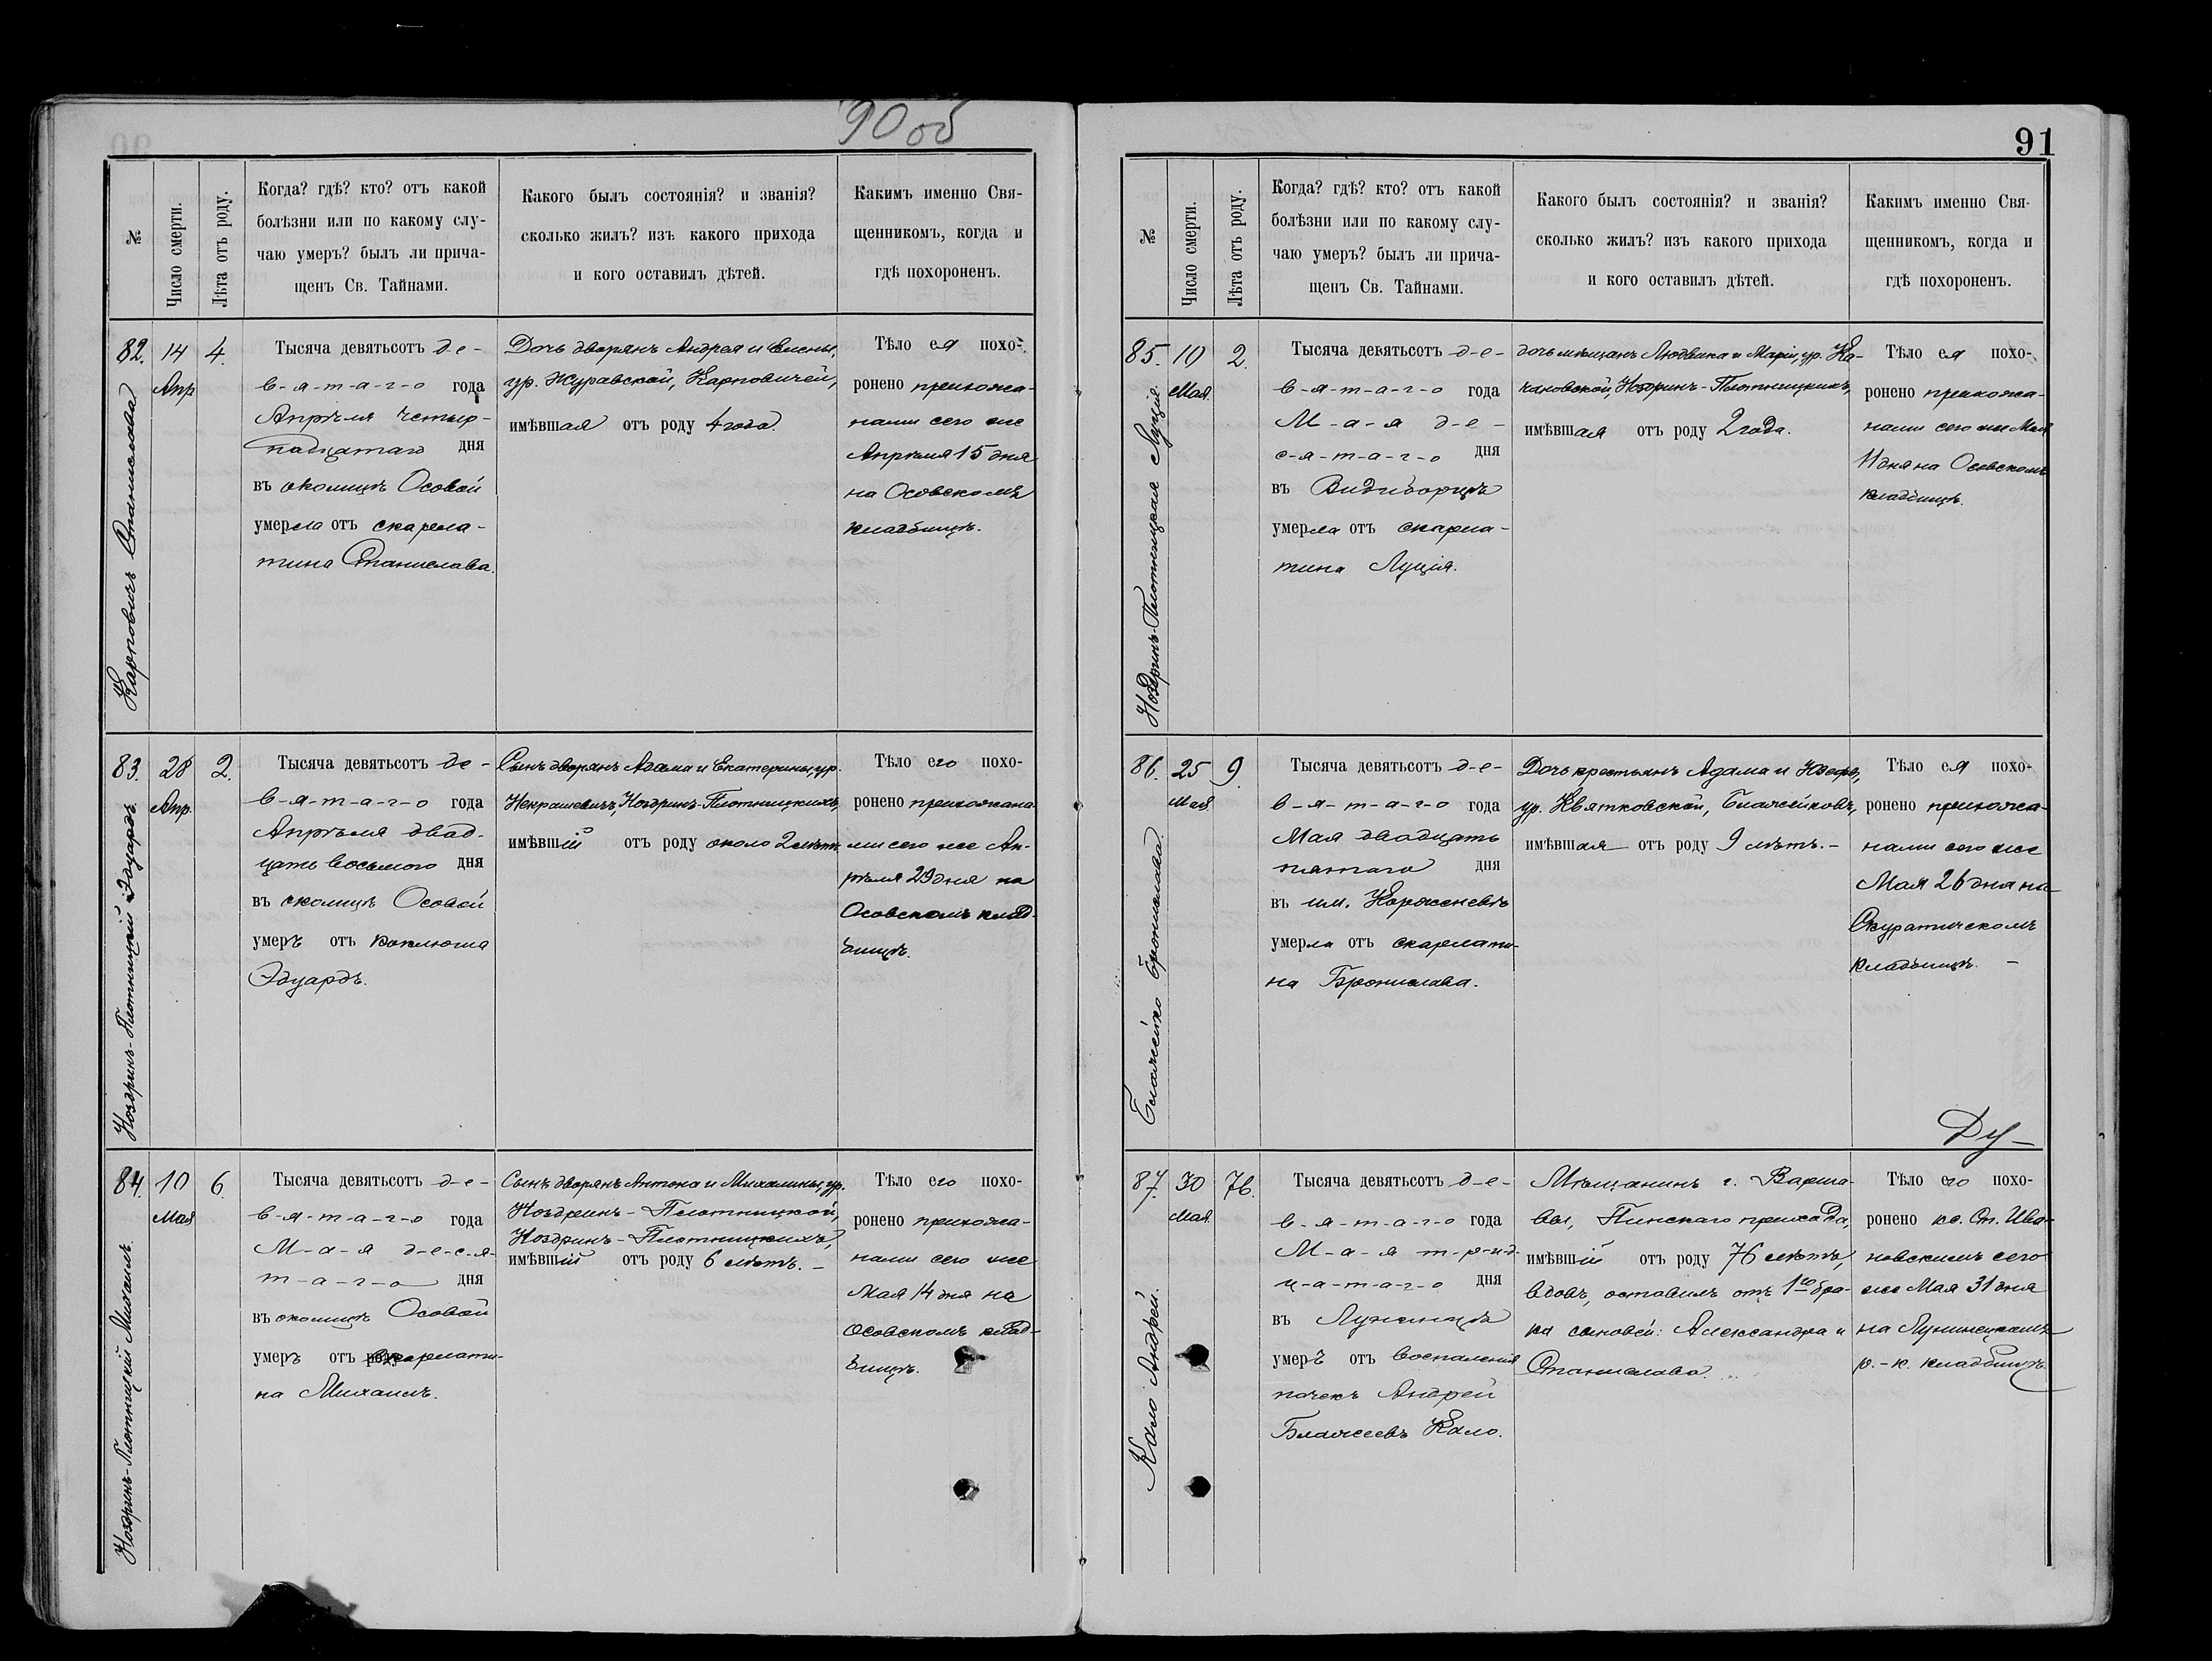 90 об
№.
Число смерти.
Лѣта отъ роду.
Когда? гдѣ? кто? отъ какой
болѣзни или по какому слу-
чаю умеръ? былъ ли прича-
щенъ Св. Тайнами.
Какого былъ состоянія? и званія?
сколько жилъ? изъ какого прихода
и кого оставилъ дѣтей.
Какимъ именно Свя-
щенникомъ, когда и
гдѣ похороненъ.
82.
Карповичъ Станислава
14
Апр
4.
Тысяча девятьсотъ де-
в-я-т-а-г-о года
Апрѣля четыр-
надцатаго дня
въ околицѣ Осовой
умерла отъ скарла-
тина Станислава.
Дочь дворянъ Андрея и Елены,
ур. Журавской, Карповичей,
имѣвшая отъ роду 4 года.
Тѣло ея похо-
ронено прихожа-
нами сего же
Апрѣля 15 дня
на Осовскомъ
кладбищѣ.
83.
Ноздринъ-Плотницкій Эдуардъ.
28
Апр.
2.
Тысяча девятьсотъ де-
в-я-т-а-г-о года
Апрѣля двад-
цать восьмого дня
въ околицѣ Осовой
умеръ отъ коклюша
Эдуардъ.
Сынъ дворянъ Адама и Екатерины, ур.
Некрашевичъ, Ноздринъ-Плотницкихъ,
имѣвшій отъ роду около 2 лѣтъ.
Тѣло его похо-
ронено прихожана-
ми сего же Ап-
рѣля 29 дня на
Осовскомъ клад-
бищѣ.
84.
Ноздринъ-Плотницкій Михаилъ.
10
Мая
6.
Тысяча девятьсотъ д-е-
в-я-т-а-г-о года
М-а-я д-е-с-я-
т-а-г-о дня
въ околицѣ Осовой
умеръ отъ скарлати-
на Михаилъ.
Сынъ дворянъ Антона и Михалины, ур.
Ноздринъ-Плотницкой,
Ноздринъ-Плотницкихъ,
имѣвшій отъ роду 6 лѣтъ. -
Тѣло его похо-
ронено прихожа-
нами сего же
Мая 14 дня на
Осовскомъ клад-
бищѣ.
91
№
Число смерти.
Лѣта отъ роду.
Когда? гдѣ? кто? отъ какой
болѣзни или по какому слу-
чаю умеръ? былъ ли прича-
щенъ Св. Тайнами.
Какого былъ состоянія? и званія?
сколько жилъ? изъ какого прихода
и кого оставилъ дѣтей.
Какимъ именно Свя-
щенникомъ, когда и
гдѣ похороненъ.
85.
Ноздринъ-Плотницкая Луція.
10
Мая.
2.
Тысяча девятьсотъ д-е-
в-я-т-а-г-о года
М-а-я д-е-
с-я-т-а-г-о дня
въ Видиборцѣ
умерла отъ скарла-
тина Луція.
дочь мѣщанъ Людвика и Маріи, ур. Ка-
кановской, Ноздринъ-Плотницкихъ,
имѣвшая отъ роду 2 года.
Тѣло ея похо-
ронено прихожа-
нами сего же Мая
11 дня на Осовскомъ
кладбищѣ.
86.
Блажейко Бронислава.
25
Мая
9.
Тысяча девятьсотъ д-е-
в-я-т-а-г-о года
Мая двадцать
пятаго дня
въ им. Корженевѣ
умерла отъ скарлати-
на Бронислава.
Дочь крестьянъ Адама и Юзефы,
ур. Квятковской, Блажейковъ,
имѣвшая отъ роду 9 лѣтъ. -
Тѣло ея похо-
ронено прихожа-
нами сего же
Мая 26 дня на
кладбищѣ. -
Ду-
87.
Кало Андрей.
30
Мая.
76.
Тысяча девятьсотъ д-е-
в-я-т-а-г-о года
М-а-я т-р-и-д-
ц-а-т-а-г-о дня
въ Лунинцѣ
умеръ отъ воспаленія
почекъ Андрей
Блажеевъ Кало.
Мѣщанинъ г. Варша-
вы, Пинскаго прихода,
имѣвшій отъ роду 76 лѣтъ,
вдовъ, оставилъ отъ 1го бра-
ка сыновей: Александра и
Станислава.
Тѣло его похо-
ронено кс. Ст. Ива-
новскимъ сего
же Мая 31 дня
на Лунинецкомъ
р.-к. кладбищѣ.